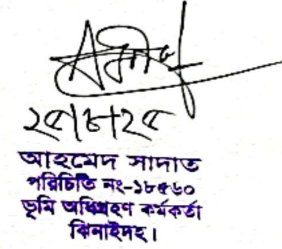 ২৫/৮/২৫
আহমেদ সাদাত
পরিচিতি নং-১৮৫৬০
ভূমি অধিগ্রহণ কর্মকর্তা
ঝিনাইদহ।